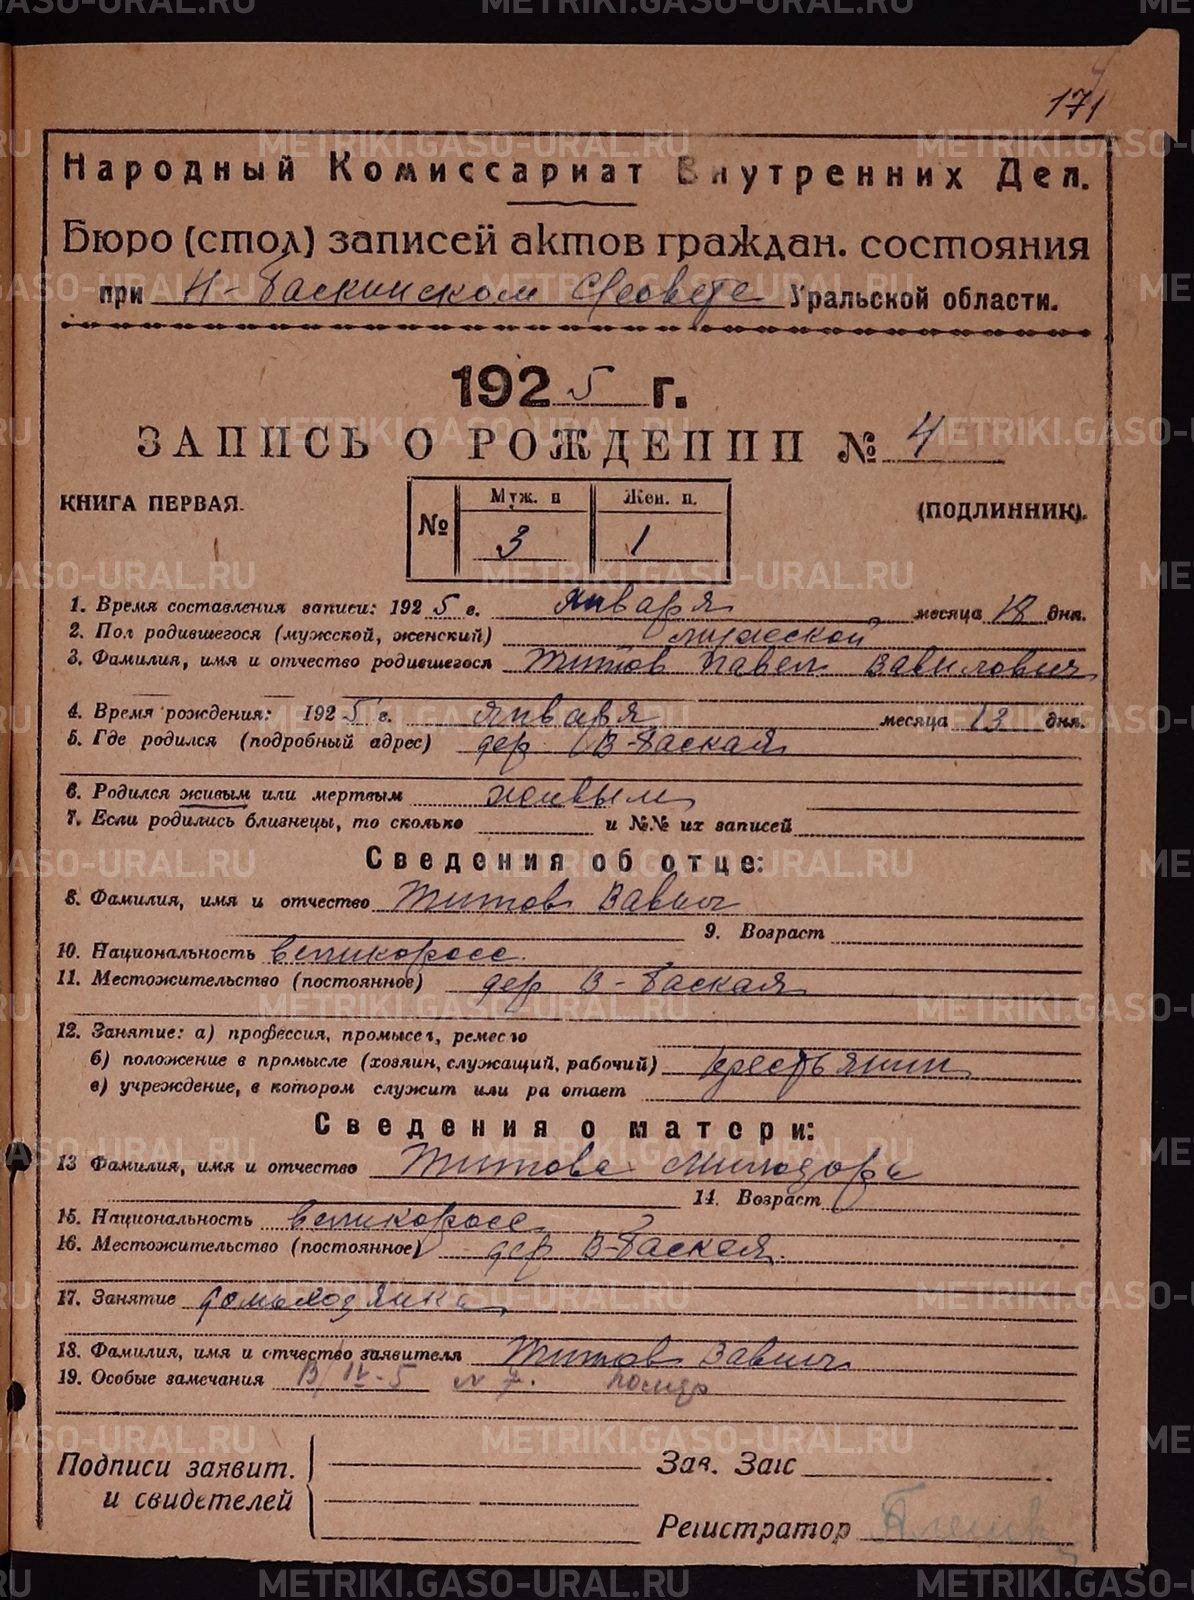 171
Народный Комиссариат Внутренних Дел.
Бюро (стол) записей актов граждан. состояния
при Н-Баскинском С/совете Уральской области.
1925 г.
ЗАПИСЬ О РОЖДЕНИИ № 4
КНИГА ПЕРВАЯ. (ПОДЛИННИК).
№ Муж. п Жен. п.
3 1
1. Время составления записи: 1925 г. января месяца 18 дня.
2. Пол родившегося (мужской, женский) мужской
3. Фамилия, имя и отчество родившегося Титов Павел Вавилович
4. Время рождения: 1925 г. января месяца 13 дня.
5. Где родился (подробный адрес) дер. В-Баская
6. Родился живым или мертвым живым
7. Если родились близнецы, то сколько и №№ их записей
Сведения об отце:
8. Фамилия, имя и отчество Титов Вавил
9. Возраст
10. Национальность великоросс.
11. Местожительство (постоянное) дер В-Баская
12. Занятие: а) профессия, промысел, ремесло
б) положение в промысле (хозяин, служащий, рабочий) крестьянин
в) учреждение, в котором служит или ра отает
Сведения о матери:
13 Фамилия, имя и отчество Титова
14. Возраст
15. Национальность великоросс
16. Местожительство (постоянное) дер В-Баская.
17. Занятие домохозяйка
18. Фамилия, имя и отчество заявителя Титов Вавил
19. Особые замечания
Подписи заявит. Зав. Загс
и свидетелей
Регистратор
METRIKI.GASO-URAL.RU